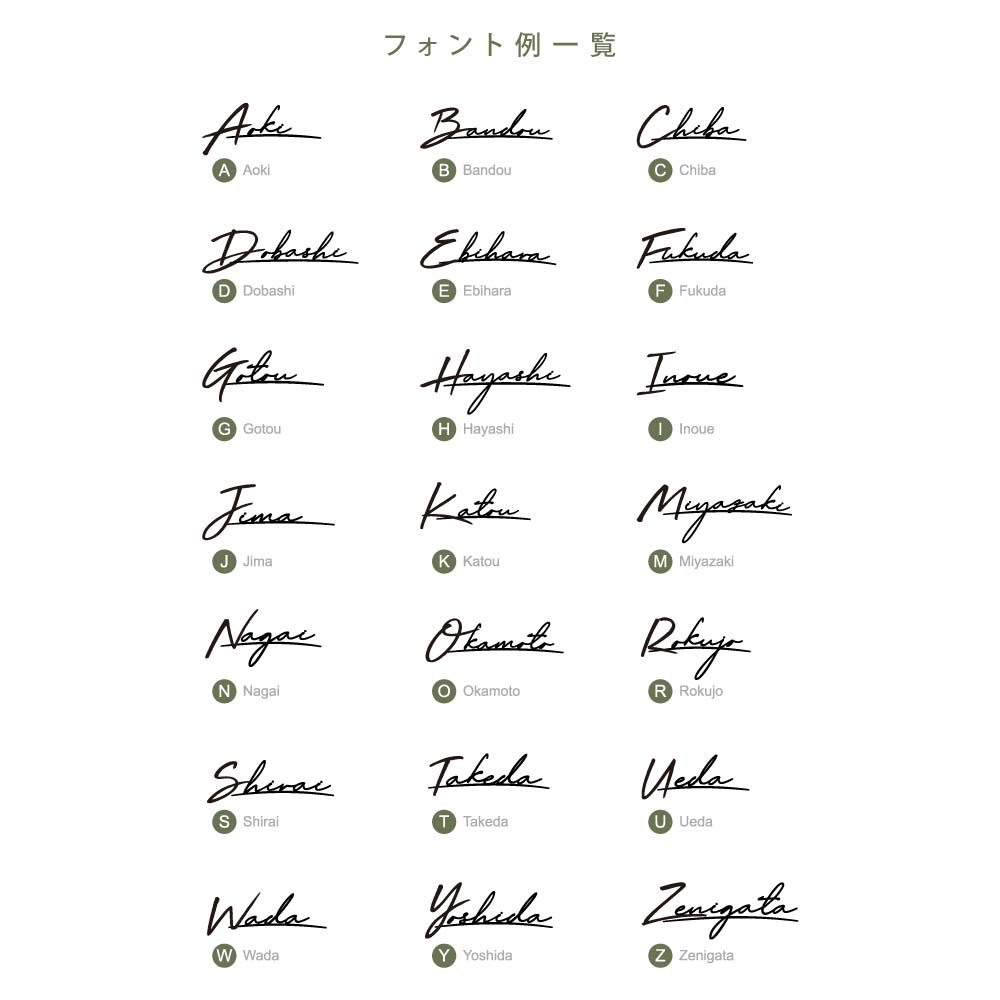 フォント例一覧
Aoki Bandou Chiba
A Aoki B Bandou C Chiba
Dobashi Ebihara Fukuda
D Dobashi E Ebihara F Fukuda
Gotou Hayashi Inoue
G Gotou H Hayashi I Inoue
Jima Katou Miyazaki
J Jima K Katou M Miyazaki
Nagai Okamoto Rokujo
N Nagai O Okamoto R Rokujo
Shirai Takeda Ueda
S Shirai T Takeda U Ueda
Wada Yoshida Zenigata
W Wada Y Yoshida Z Zenigata